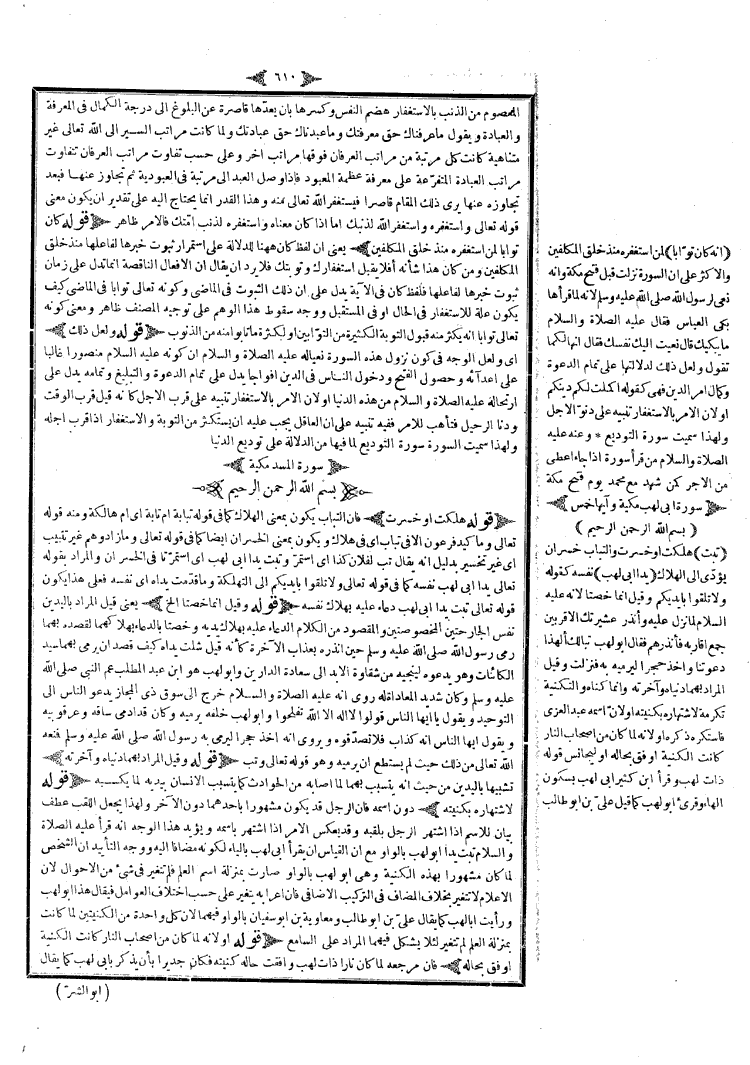 ٦١٠
المعصوم من الذنب بالاستغفار هضم النفس وكسرها بان يعدّها قاصرة عن البلوغ الى درجة الكمال فى المعرفة
والعبادة ويقول ما عرفناك حق معرفتك وما عبدناك حق عبادتك ولما كانت مراتب السير الى الله تعالى غير
متناهية كانت كل مرتبة من مراتب العرفان فوقها مراتب اخر وعلى حسب تفاوت مراتب العرفان تتفاوت
مراتب العبادة المتفرّعة على معرفة عظمة المعبود فاذا وصل العبد الى مرتبة فى العبودية ثم تجاوز عنها فبعد
تجاوزه عنها يرى ذلك المقام قاصرا فيستغفر الله تعالى منه وهذا القدر انما يحتاج اليه على تقدير ان يكون معنى
قوله تعالى واستغفره واستغفر الله لذنبك اما اذا كان معناه واستغفره لذنب امّتك فالامر ظاهر ﴿ قوله كان
توابا لمن استغفره منذ خلق المكلفين ﴾ يعنى ان لفظ كان ههنا للدلالة على استمرار ثبوت خبرها لفاعلها منذ خلق
المكلفين ومن كان هذا شأنه أفلا يقبل استغفارك وتوبتك فلا يرد ان يقال ان الافعال الناقصة انما تدل على زمان
ثبوت خبرها لفاعلها فلفظ كان فى الآية يدل على ان ذلك الثبوت فى الماضى وكونه تعالى توابا فى الماضى كيف
يكون علة للاستغفار فى الحال او فى المستقبل ووجه سقوط هذا الوهم على توجيه المصنف ظاهر ومعنى كونه
تعالى توابا انه يكثر منه قبول التوبة الكثيرة من التوّابين او لكثرة ما تابوا منه من الذنوب ﴿ قوله ولعل ذلك ﴾
اى ولعل الوجه فى كون نزول هذه السورة نعيا له عليه الصلاة والسلام ان كونه عليه السلام منصورا غالبا
على اعدآئه وحصول الفتح ودخول الناس فى الدين افواجا يدل على تمام الدعوة والتبليغ وتمامه يدل على
ارتحاله عليه الصلاة والسلام من هذه الدنيا اولان الامر بالاستغفار تنبيه على قرب الاجل كانه قيل قرب الوقت
ودنا الرحيل فتأهب للامر ففيه تنبيه على ان العاقل يجب عليه ان يستكثر من التوبة والاستغفار اذا قرب اجله
ولهذا سميت السورة سورة التوديع لما فيها من الدلالة على توديع الدنيا
﴿ سورة المسد مكية ﴾
﴿ بسم الله الرحمن الرحيم ﴾
﴿ قوله هلكت او خسرت ﴾ فان التباب يكون بمعنى الهلاك كما فى قوله تبابة ام تابة اى ام هالكة ومنه قوله
تعالى وما كيد فرعون الا فى تباب اى فى هلاك ويكون بمعنى الخسران ايضا كما فى قوله تعالى وما زادوهم غير تتبيب
اى غير تخسير بدليل انه يقال تب لفلان كذا اى استمرّ وتبت يدا ابى لهب اى استمرّتا فى الخسران والمراد بقوله
تعالى يدا ابى لهب نفسه كما فى قوله تعالى ولا تلقوا بايديكم الى التهلكة وما قدّمت يداه اى نفسه فعلى هذا يكون
قوله تعالى تبت يدا ابى لهب دعاء عليه بهلاك نفسه ﴿ قوله وقيل انما خصتا الخ ﴾ يعنى قيل المراد باليدين
نفس الجارحتين المخصوصتين والمقصود من الكلام الدعاء عليه بهلاك يديه وخصتا بالدعاء بهلاكهما لقصده بهما
رمى رسول الله صلى الله عليه وسلم حين انذره بعذاب الآخرة كأنه قيل شلت يداه كيف قصد ان يرمى بهما سيد
الكائنات وهو يدعوه لينجيه من شقاوة الابد الى سعادة الدارين وابولهب هو ابن عبد المطلب عم النبى صلى الله
عليه وسلم وكان شديد المعاداة له روى انه عليه الصلاة والسلام خرج الى سوق ذى المجاز يدعو الناس الى
التوحيد ويقول يا ايها الناس قولوا لا اله الا الله تفلحوا وابولهب خلفه يرميه وكان قد ادمى ساقه وعرقوبيه
ويقول ايها الناس انه كذاب فلا تصدّقوه ويروى انه اخذ حجرا ليرمى به رسول الله صلى الله عليه وسلم فمنعه
الله تعالى من ذلك حيث لم يستطع ان يرميه وهو قوله تعالى وتب ﴿ قوله وقيل المراد بهما دنياه وآخرته ﴾
تشبيها باليدين من حيث انه يتسبب بهما لما اصابه من الحوادث كما يتسبب الانسان بيديه لما يكسبه ﴿ قوله
لاشتهاره بكنيته ﴾ دون اسمه فان الرجل قد يكون مشهورا باحدهما دون الآخر ولهذا يجعل اللقب عطف
بيان للاسم اذا اشتهر الرجل بلقبه وقد يعكس الامر اذا اشتهر باسمه ويؤيد هذا الوجه انه قرأ عليه الصلاة
والسلام تبت يدا ابولهب بالواو مع ان القياس ان يقرأ ابى لهب بالياء لكونه مضافا اليه ووجه التأييد ان الشخص
لما كان مشهورا بهذه الكنية وهى ابولهب بالواو صارت بمنزلة اسم العلم فلم تتغير فى شئ من الاحوال لان
الاعلام لا تتغير بخلاف المضاف فى التركيب الاضافى فان اعرابه يتغير على حسب اختلاف العوامل فيقال هذا ابولهب
ورأيت ابالهب كما يقال علىّ بن ابوطالب ومعاوية بن ابوسفيان بالواو فيهما لان كل واحدة من الكنيتين لما كانت
بمنزلة العلم لم تتغير لئلا يشكل فيهما المراد على السامع ﴿ قوله اولانه لما كان من اصحاب النار كانت الكنية
اوفق بحاله ﴾ فان مرجعه لما كان نارا ذات لهب وافقت حاله كنيته فكان جديرا بأن يذكر بابى لهب كما يقال
( ابوالشرّ )
(انه كان توّابا) لمن استغفره منذ خلق المكلفين
والاكثر على ان السورة نزلت قبل فتح مكة وانه
نعى لرسول الله صلى الله عليه وسلم لانه لما قرأها
بكى العباس فقال عليه الصلاة والسلام
ما يبكيك قال نعيت اليك نفسك فقال انها لكما
تقول ولعل ذلك لدلالتها على تمام الدعوة
وكمال امر الدين فهى كقوله اكملت لكم دينكم
اولان الامر بالاستغفار تنبيه على دنوّ الاجل
ولهذا سميت سورة التوديع * وعنه عليه
الصلاة والسلام من قرأ سورة اذا جاء اعطى
من الاجر كمن شهد مع محمد يوم فتح مكة
﴿ سورة ابى لهب مكية وآيها خمس ﴾
( بسم الله الرحمن الرحيم )
(تبت) هلكت او خسرت والتباب خسران
يؤدّى الى الهلاك (يدا ابى لهب) نفسه كقوله
ولا تلقوا بايديكم وقيل انما خصتا لانه عليه
السلام لما نزل عليه وانذر عشيرتك الاقربين
جمع اقاربه فأنذرهم فقال ابولهب تبالك ألهذا
دعوتنا واخذ حجرا ليرميه به فنزلت وقيل
المراد بهما دنياه وآخرته وانما كناه والتكنية
تكرمة لاشتهاره بكنيته اولان اسمه عبد العزى
فاستكره ذكره اولانه لما كان من اصحاب النار
كانت الكنية اوفق بحاله او ليجانس قوله
ذات لهب وقرأ ابن كثير ابى لهب بسكون
الهاء وقرئ ابولهب كما قيل علىّ بن ابوطالب